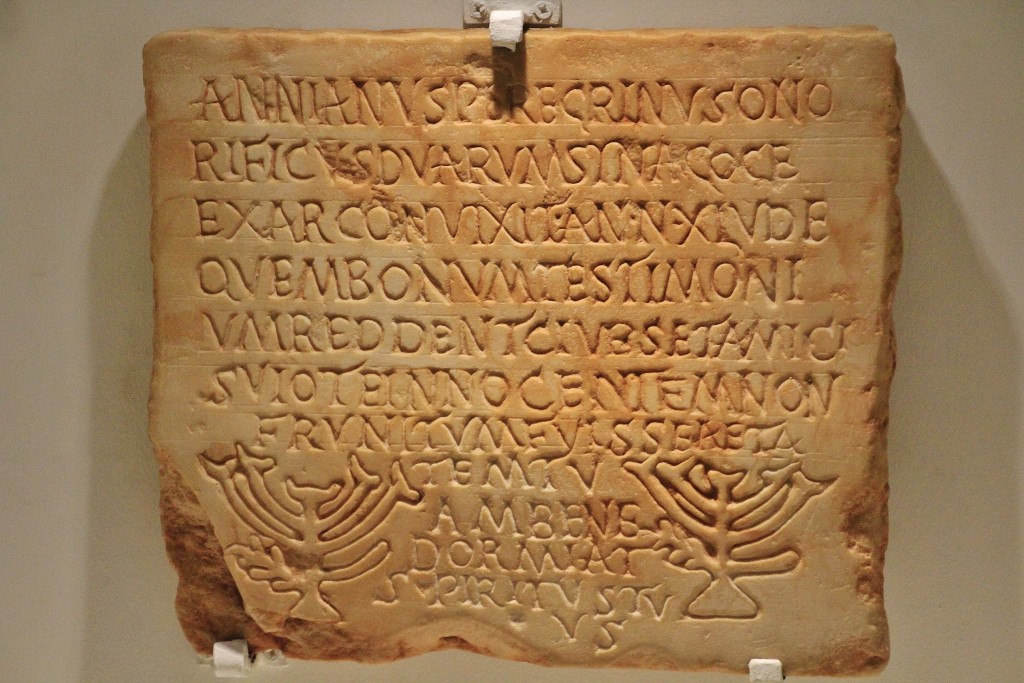 ANNIANVSPEREGRINVSONO
RIFICVSDVARVMSINAGOGE
EXARCONVIXITANNXLVDE
QVEMBONVMTESTIMONI
VMREDDENTCIVESETAMICI
SVIOTEINNOCENTEMNON
FRVNITVMFVISSEAETA
TEMTV
AMBENE
DORMIAT
SPIRITVSTV
VS